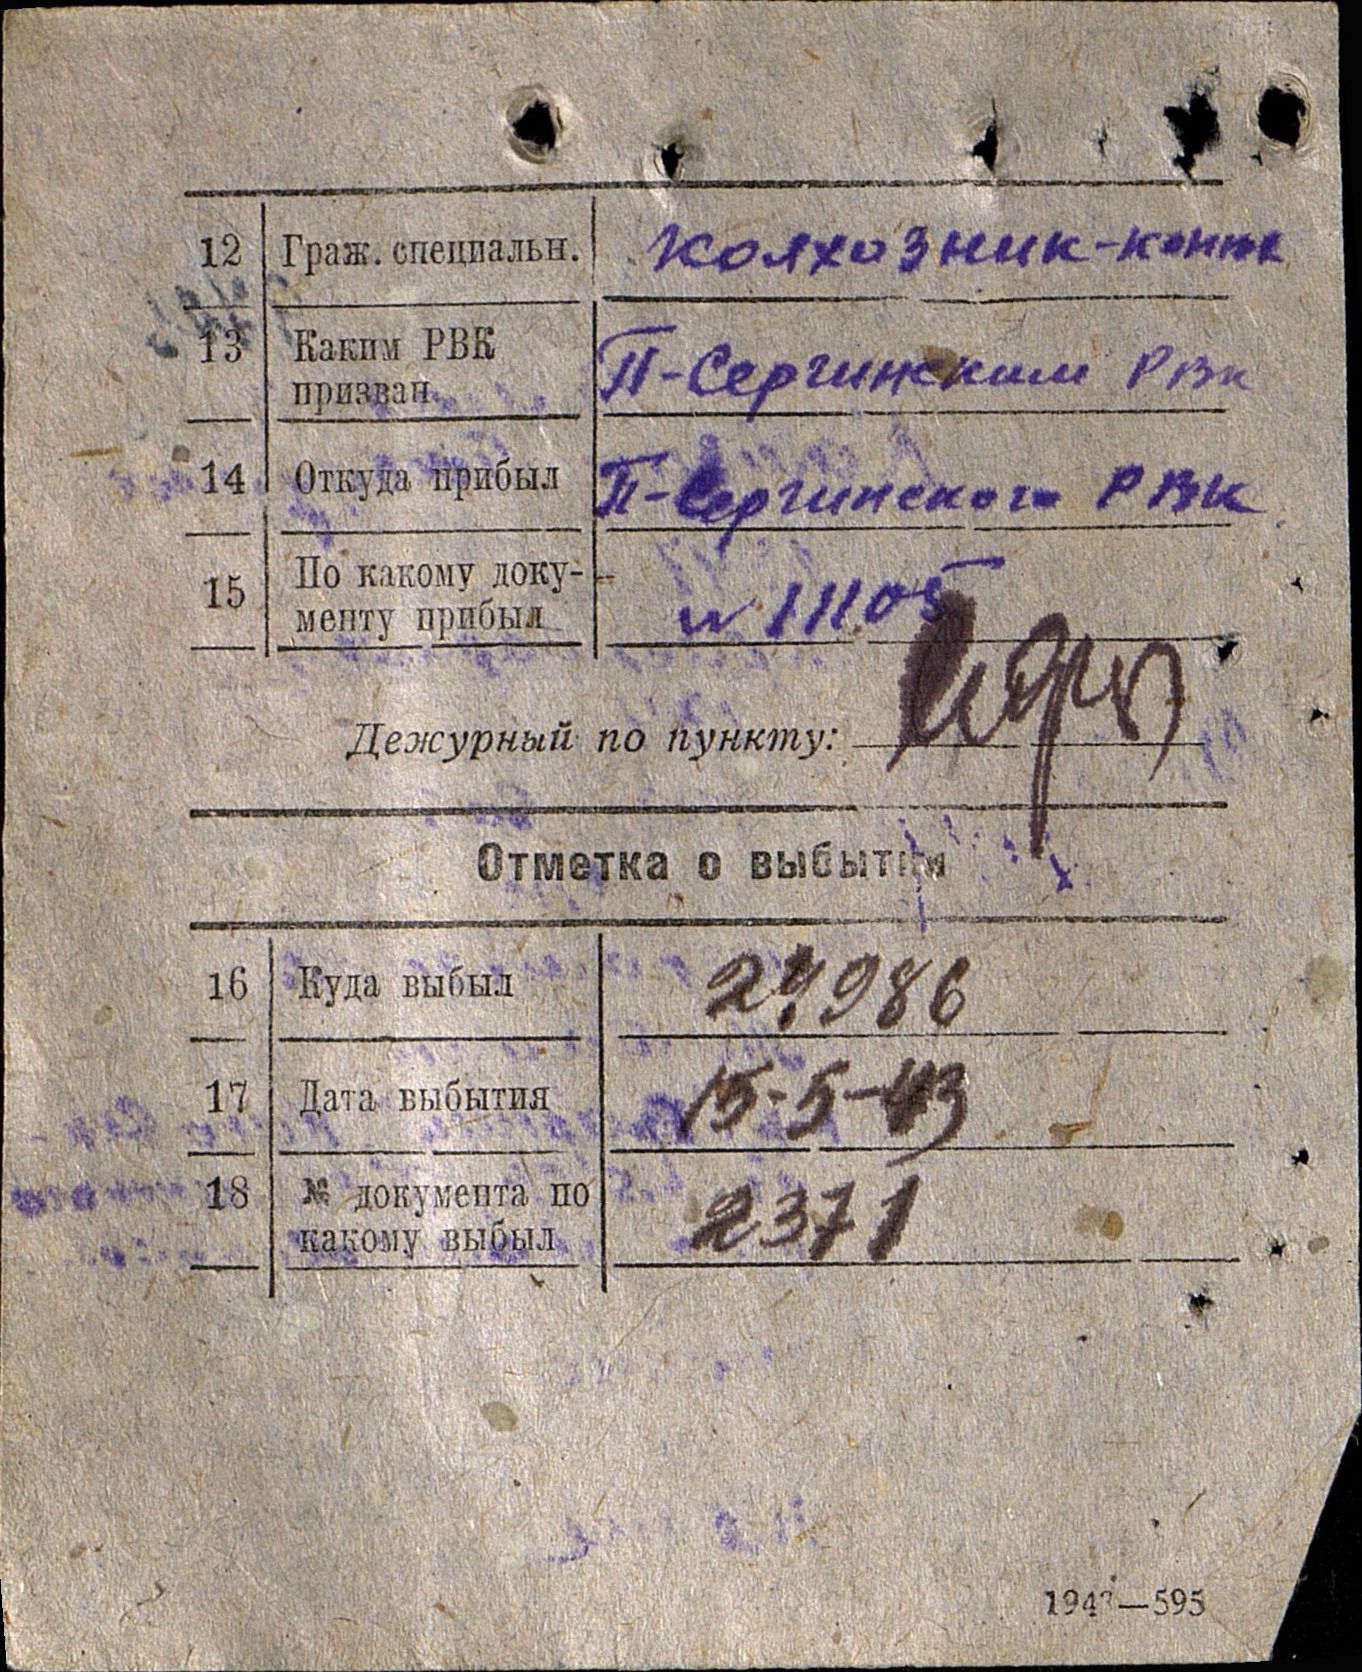 12 Граж. специальн. колхозник-конюх
13 Каким РВК П-Сергинским РВК
призван
14 Откуда прибыл П-Сергинского РВК
15 По какому доку-
менту прибыл № 11105
Дежурный по пункту:
Отметка о выбытии
16 Куда выбыл 24986
17 Дата выбытия 15-5-43
18 № документа по 2371
какому выбыл
1943—595